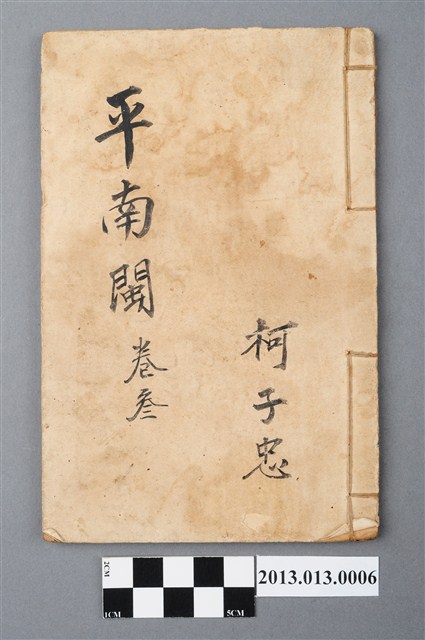 平南閩卷叁
柯子忠
2CM
1CM
5CM
2013.013.0006